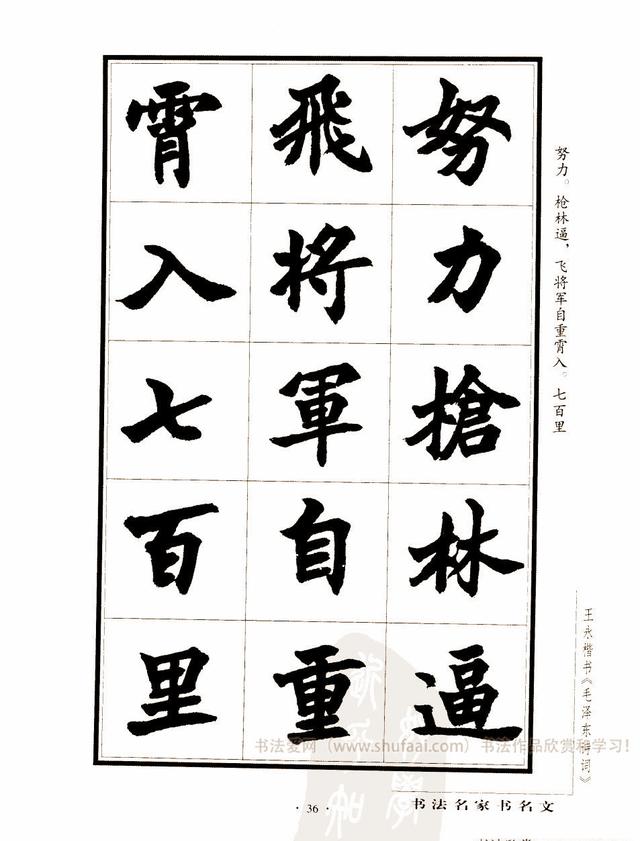 努力槍林逼
飛將軍自重
霄入七百里
努力。枪林逼，飞将军自重霄入。七百里
王永楷书《毛泽东诗词》
书法爱网（www.shufaai.com）书法作品欣赏和学习！
· 36 ·
书法名家书名文